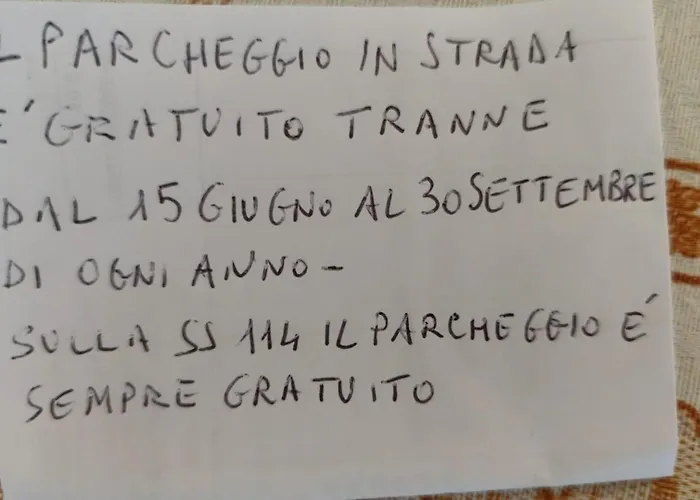 L PARCHEGGIO IN STRADA
E´ GRATUITO TRANNE
DAL 15 GIUGNO AL 30 SETTEMBRE
DI OGNI ANNO -
SULLA SS 114 IL PARCHEGGIO E´
SEMPRE GRATUITO